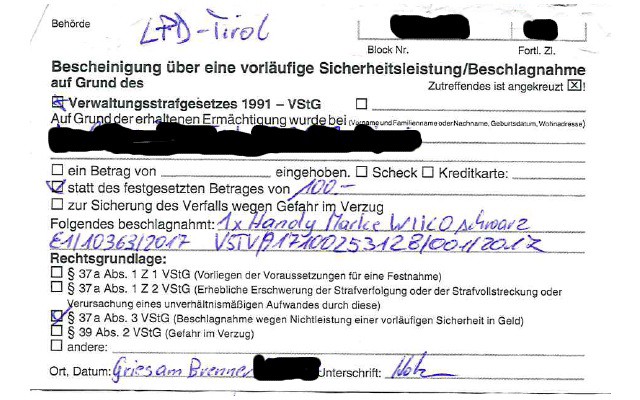 Behörde
LPD-Tirol
Block Nr. Fortl. Zl.
Bescheinigung über eine vorläufige Sicherheitsleistung/Beschlagnahme
auf Grund des
Zutreffendes ist angekreuzt ☒!
☒ Verwaltungsstrafgesetzes 1991 – VStG ☐
Auf Grund der erhaltenen Ermächtigung wurde bei (Vorname und Familienname oder Nachname, Geburtsdatum, Wohnadresse)
☐ ein Betrag von eingehoben. ☐ Scheck ☐ Kreditkarte:
☑ statt des festgesetzten Betrages von 100.-
☐ zur Sicherung des Verfalls wegen Gefahr im Verzug
Folgendes beschlagnahmt: 1x Handy Marke WIKO schwarz
E1/10363/2017 VStV/917100253128/001/2017
Rechtsgrundlage:
☐ § 37a Abs. 1 Z 1 VStG (Vorliegen der Voraussetzungen für eine Festnahme)
☐ § 37a Abs. 1 Z 2 VStG (Erhebliche Erschwerung der Strafverfolgung oder der Strafvollstreckung oder
Verursachung eines unverhältnismäßigen Aufwandes durch diese)
☑ § 37a Abs. 3 VStG (Beschlagnahme wegen Nichtleistung einer vorläufigen Sicherheit in Geld)
☐ § 39 Abs. 2 VStG (Gefahr im Verzug)
☐ andere:
Ort, Datum: Gries am Brenner Unterschrift: